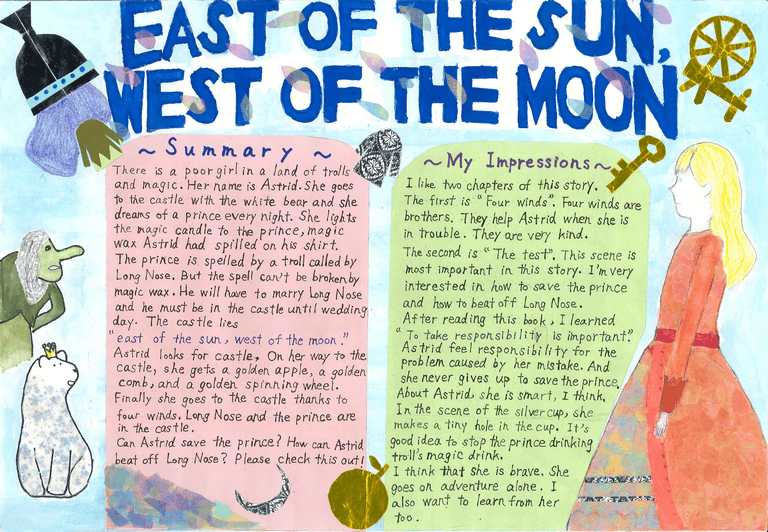 EAST OF THE SUN,
WEST OF THE MOON
~ Summary ~
There is a poor girl in a land of trolls
and magic. Her name is Astrid. She goes
to the castle with the white bear and she
dreams of a prince every night. She lights
the magic candle to the prince, magic
wax Astrid had spilled on his shirt.
The prince is spelled by a troll called by
Long Nose. But the spell can't be broken by
magic wax. He will have to marry Long Nose
and he must be in the castle until wedding
day. The castle lies
"east of the sun, west of the moon."
Astrid looks for castle. On her way to the
castle, she gets a golden apple, a golden
comb, and a golden spinning wheel.
Finally she goes to the castle thanks to
four winds. Long Nose and the prince are
in the castle.
Can Astrid save the prince? How can Astrid
beat off Long Nose? Please check this out!
~ My Impressions ~
I like two chapters of this story.
The first is "Four winds". Four winds are
brothers. They help Astrid when she is
in trouble. They are very kind.
The second is "The test". This scene is
most important in this story. I'm very
interested in how to save the prince
and how to beat off Long Nose.
After reading this book, I learned
"To take responsibility is important."
Astrid feel responsibility for the
problem caused by her mistake. And
she never gives up to save the prince.
About Astrid, she is smart, I think.
In the scene of the silver cup, she
makes a tiny hole in the cup. It's
good idea to stop the prince drinking
troll's magic drink.
I think that she is brave. She
goes on adventure alone. I
also want to learn from her
too.